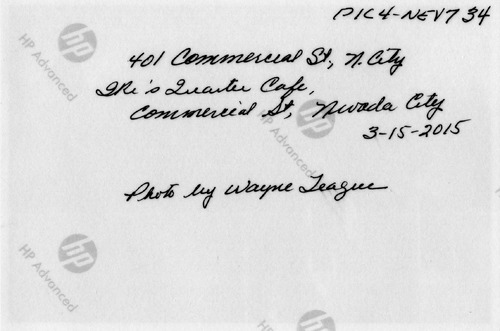 PIC4-NEV7 34
401 Commercial St, N. City
Ike's Quarter Cafe,
Commercial St, Nevada City
3-15-2015
Photo by Wayne League
hp
HP Advanced
hp
HP Advanced
hp
HP Advanced
hp
HP Advanced
hp